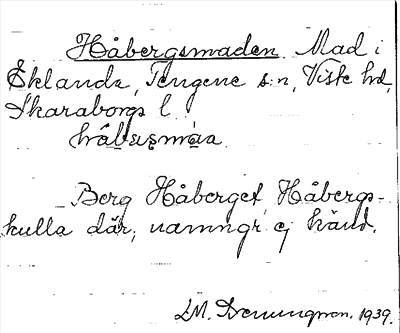 Håbergsmaden Mad i
Eklanda, Tengene s:n, Viste hd,
Skaraborgs l.
Berg Håberget Håbergs-
kulla där; namngr. ej känd.
1939.